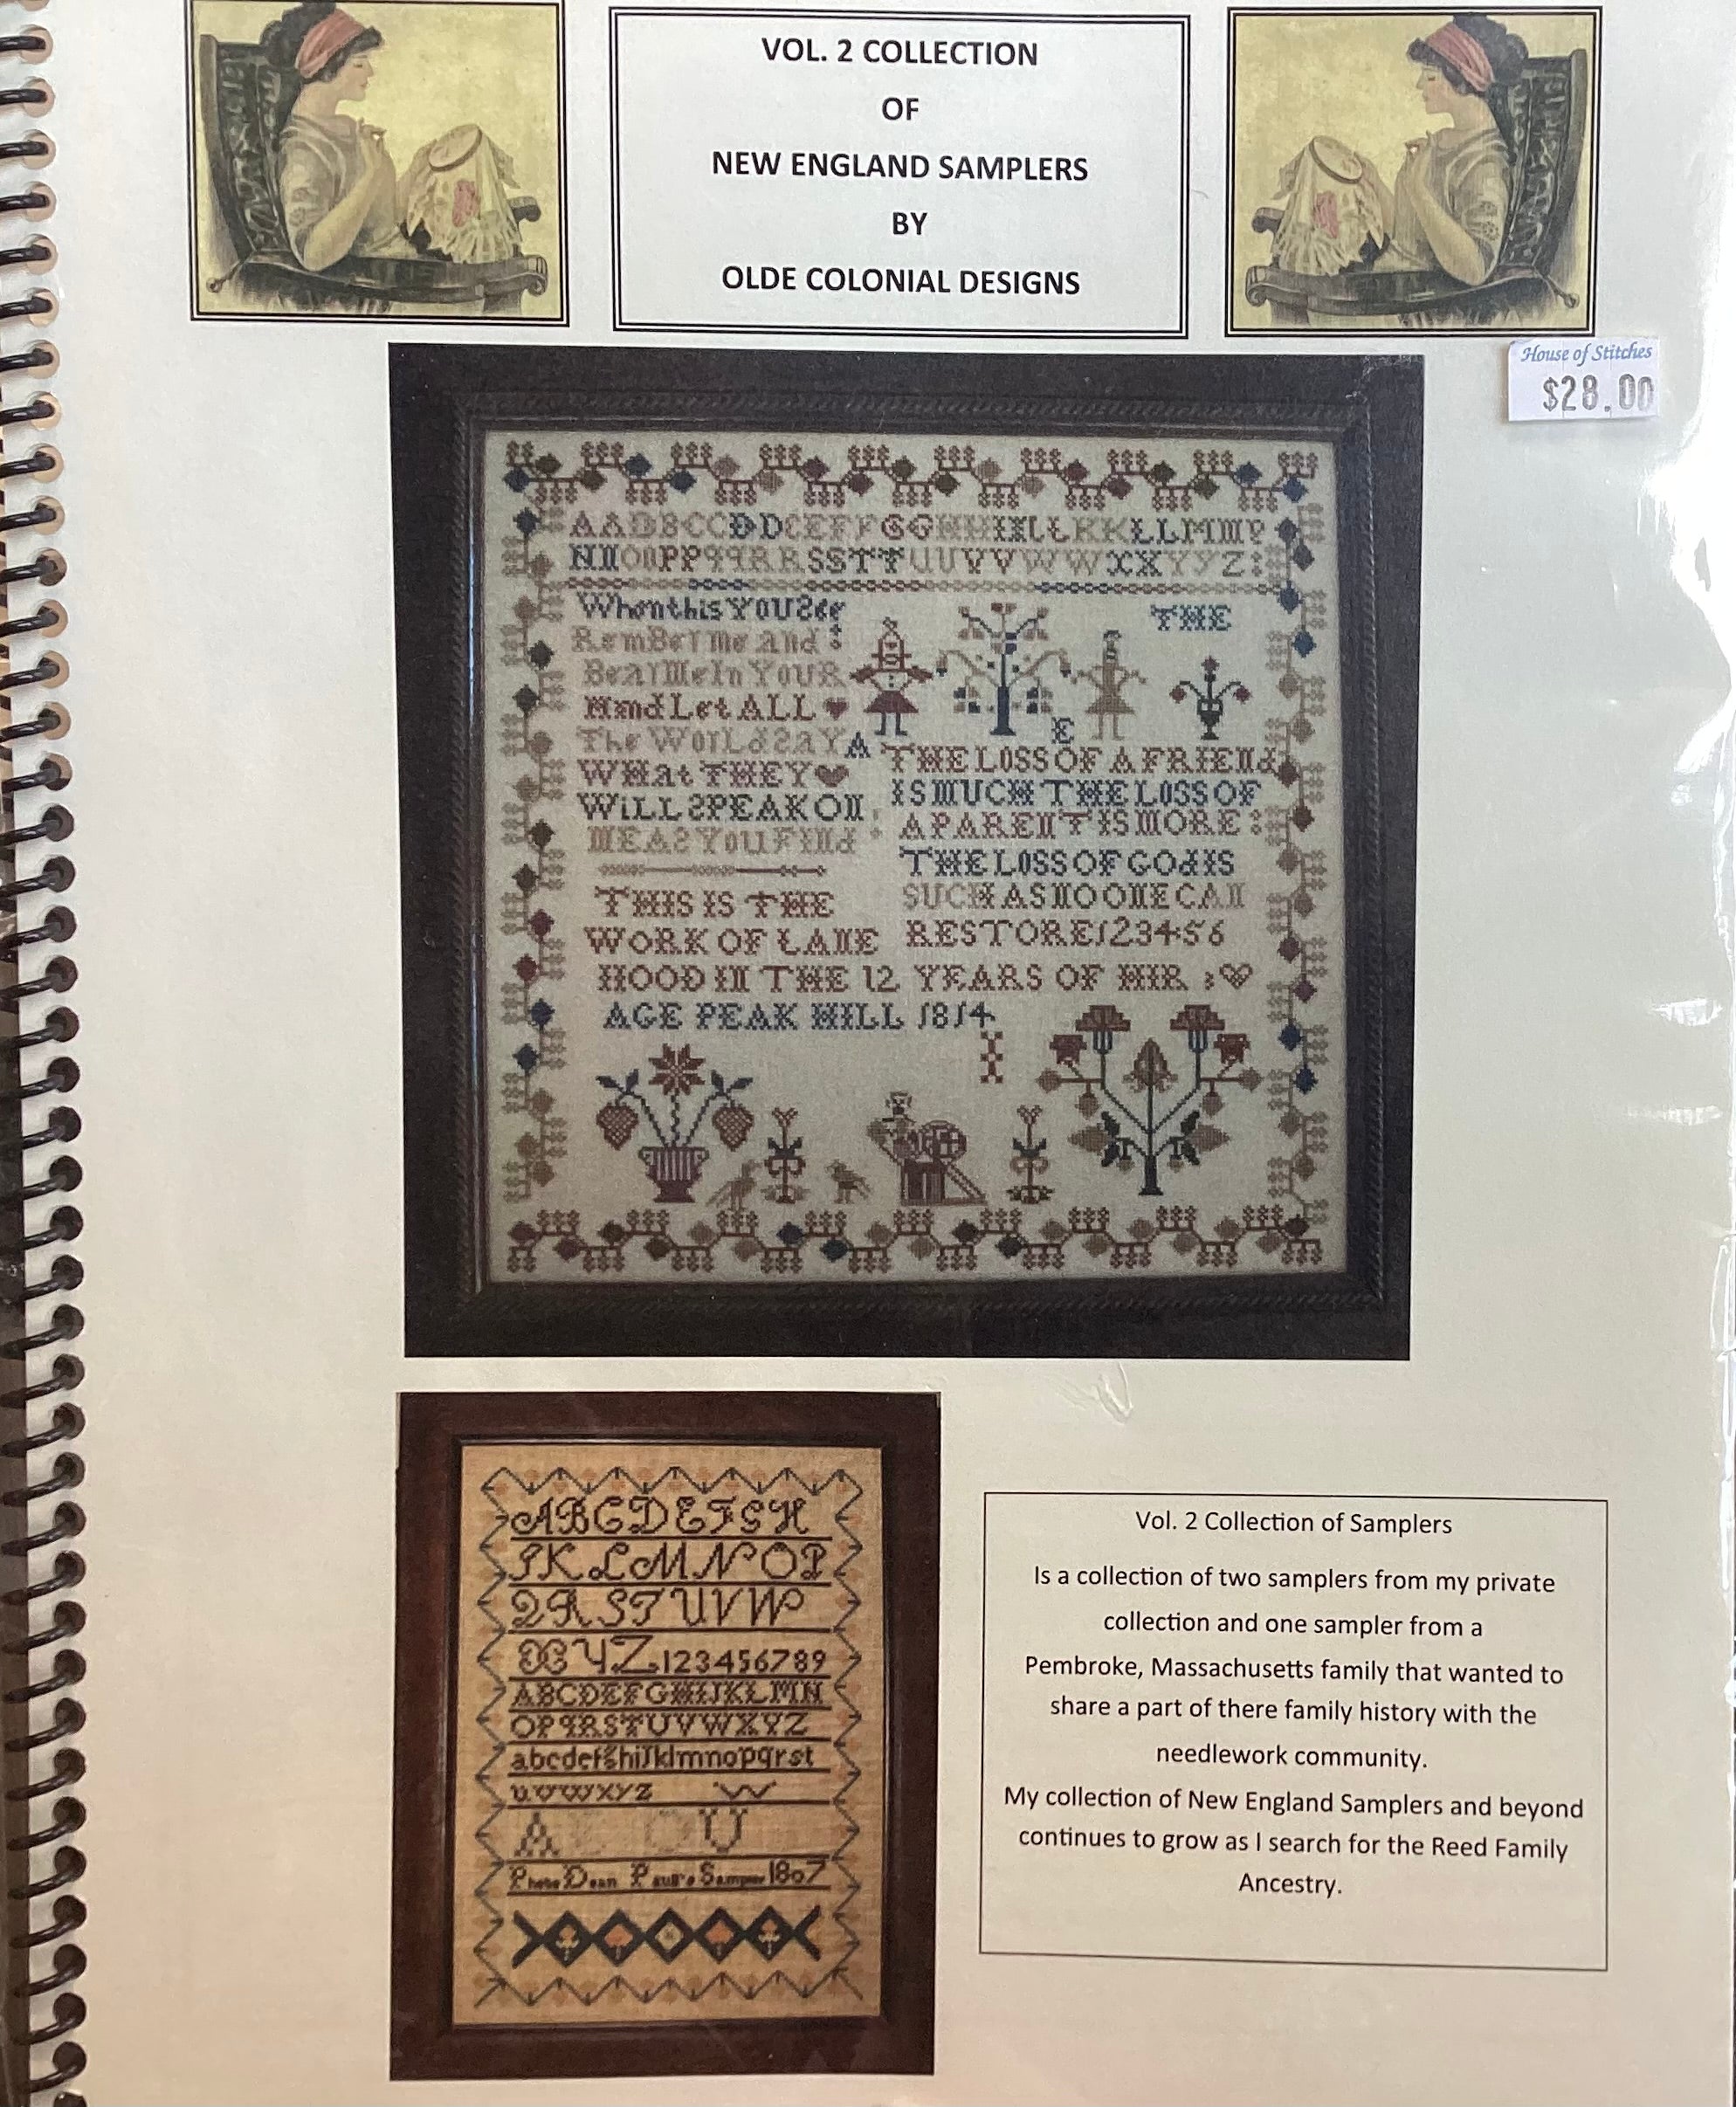 VOL. 2 COLLECTION
OF
NEW ENGLAND SAMPLERS
BY
OLDE COLONIAL DESIGNS
House of Stitches
$28.00
AABBCCDDEEFFGGHHIILLKKLLMM
NNOOPPqqRRSSTTUUVVWWXXYYZ:
When this YOU See
RemBer me and :
Bear Me In YOUR
Mind Let ALL
The WorLd SaY
WHat THEY
WiLL SPEAK ON
ME AS YOU FINd
THIS IS THE
WORK OF LANE
THE
E
A THE LOSS OF A FRIENd
IS MUCH THE LOSS OF
A PARENT IS MORE :
THE LOSS OF GOd IS
SUCH AS NO ONE CAN
RESTORE 123456
HOOD IN THE 12 YEARS OF HIR :
AGE PEAK HILL 1814
ABCDEFGH
IKLMNOP
QRSTUVW
XYZ 123456789
ABCDEFGHIJKLMN
OPqRSTUVWXYZ
abcdefghijklmnopqrst
uvwxyz W
A E O U
Phebe Dean Paull's Sampler 1807
Vol. 2 Collection of Samplers
Is a collection of two samplers from my private
collection and one sampler from a
Pembroke, Massachusetts family that wanted to
share a part of there family history with the
needlework community.
My collection of New England Samplers and beyond
continues to grow as I search for the Reed Family
Ancestry.